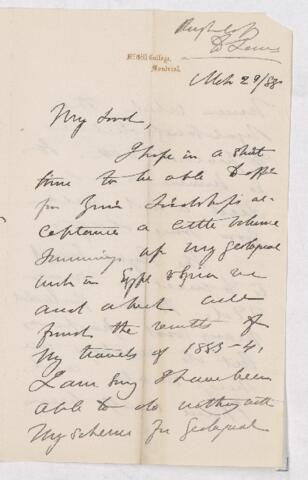 McGill College,
Montreal.
Mch 29/88
My Lord,
I hope in a short
time to be able to offer
for your Lordship's ac-
ceptance a little volume
summing up my geological
work in Egypt & Syria
and which will
finish the results of
my travels of 1883-4.
I am sorry I have been
able to do nothing with
my scheme for geological